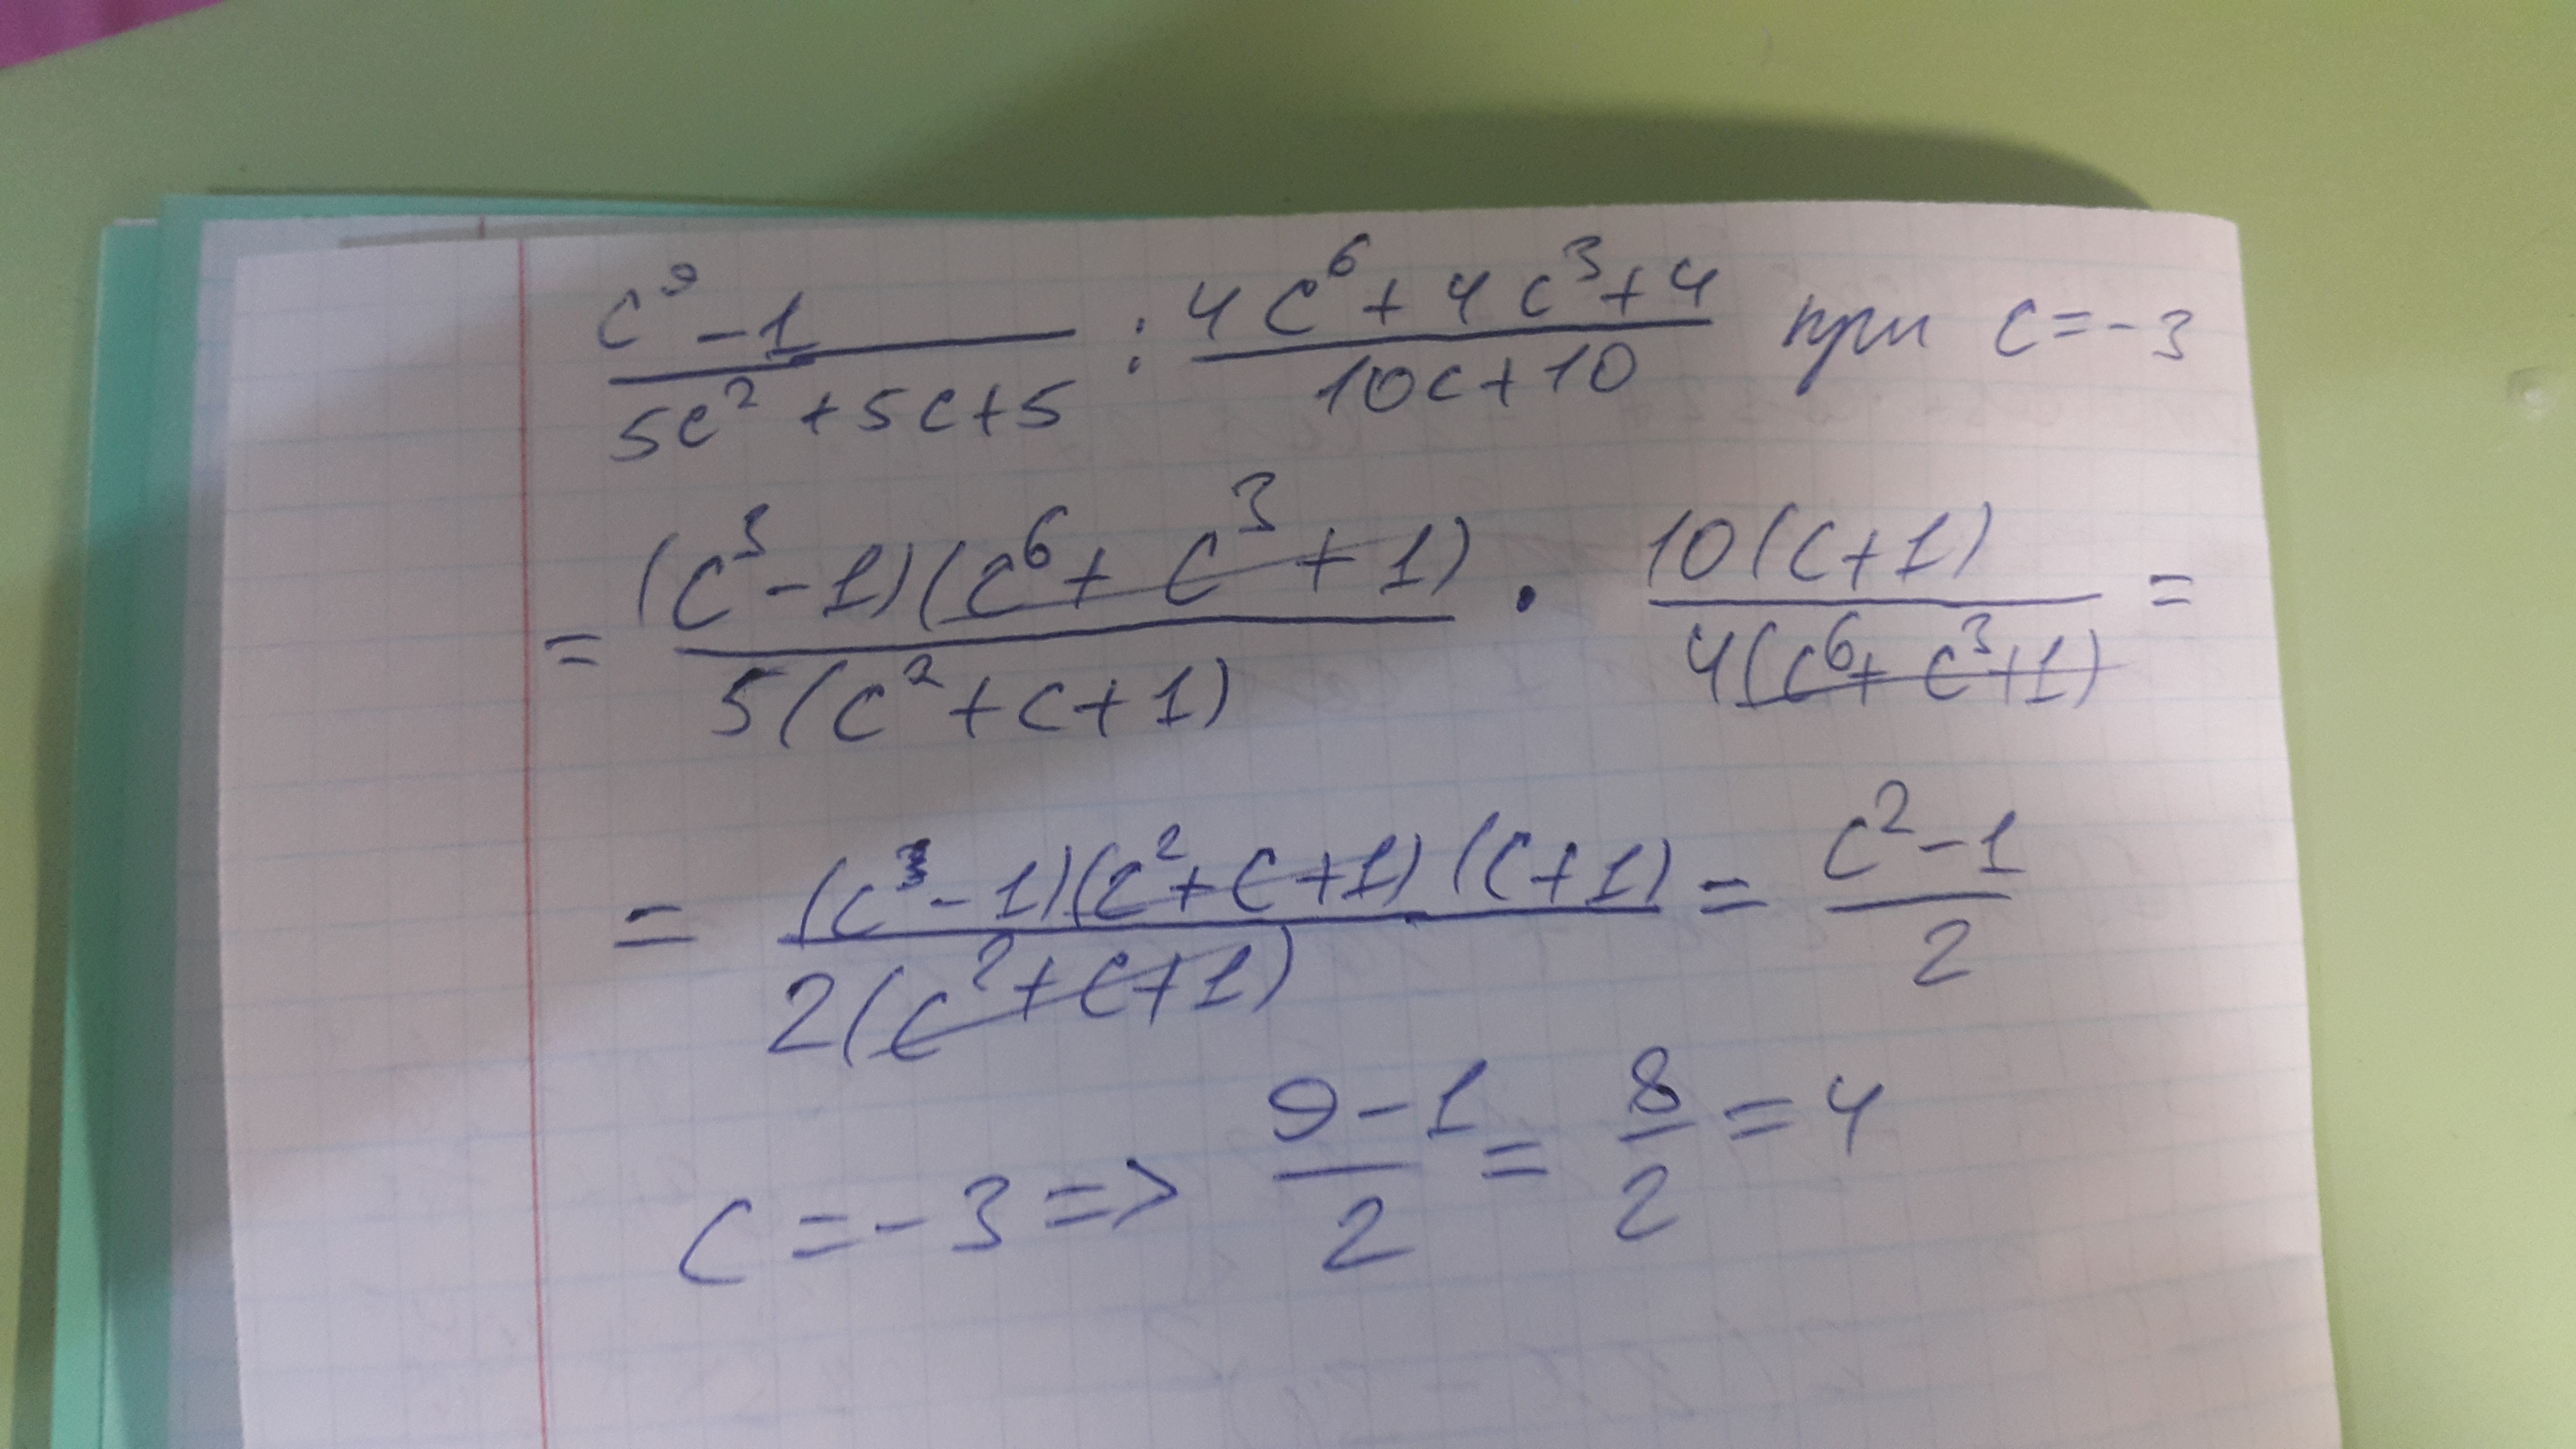 (c⁹ - 1)/(5c² + 5c + 5) : (4c⁶ + 4c³ + 4)/(10c + 10) при c = -3
= (c³ - 1)(c⁶ + c³ + 1)/5(c² + c + 1) · 10(c + 1)/4(c⁶ + c³ + 1) =
= (c³ - 1)(c² + c + 1)(c + 1)/2(c² + c + 1) = (c² - 1)/2
c = -3 => (9 - 1)/2 = 8/2 = 4